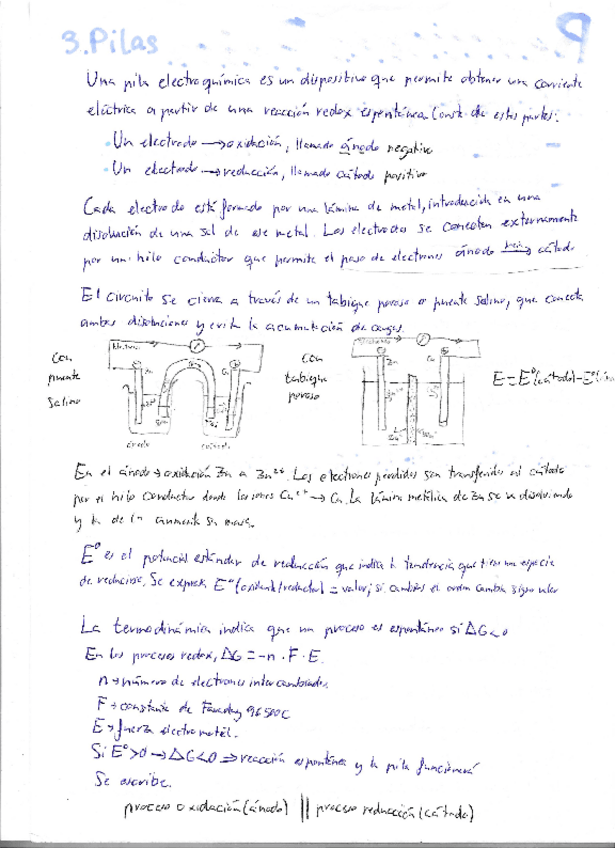 3. Pilas
Una pila electroquímica es un dispositivo que permite obtener una corriente
eléctrica a partir de una reacción redox espontánea. Const. de estas partes:
· Un electrodo → oxidación, llamado ánodo negativo
· Un electrodo → reducción, llamado cátodo positivo
Cada electrodo está formado por una lámina de metal, introducida en una
disolución de una sal de ese metal. Los electrodos se conectan externamente
por un hilo conductor que permite el paso de electrones ánodo → cátodo
El circuito se cierra a través de un tabique poroso o puente salino, que conecta
ambas disoluciones y evita la acumulación de cargas.
Con puente salino
Zn
Cu
ánodo
cátodo
con tabique poroso
Zn
Cu
E = E°(cátodo) - E°
En el ánodo → oxidación Zn a Zn²⁺. Los electrones perdidos son transferidos al cátodo
por el hilo conductor donde los iones Cu²⁺ → Cu. La lámina metálica de Zn se va disolviendo
y la de Cu aumenta su masa.
E° es el potencial estándar de reducción que indica la tendencia que tiene una especie
de reducirse. Se expresa E°(oxidante/reductor) = valor; si cambias el orden cambia signo valor
La termodinámica indica que un proceso es espontáneo si ΔG<0
En los procesos redox, ΔG = -n · F · E.
n → número de electrones intercambiados.
F → constante de Faraday 96500C
E → fuerza electromotriz.
Si E°>0 → ΔG<0 ⇒ reacción espontánea y la pila funcionará
Se escribe.
proceso oxidación (ánodo) || proceso reducción (cátodo)